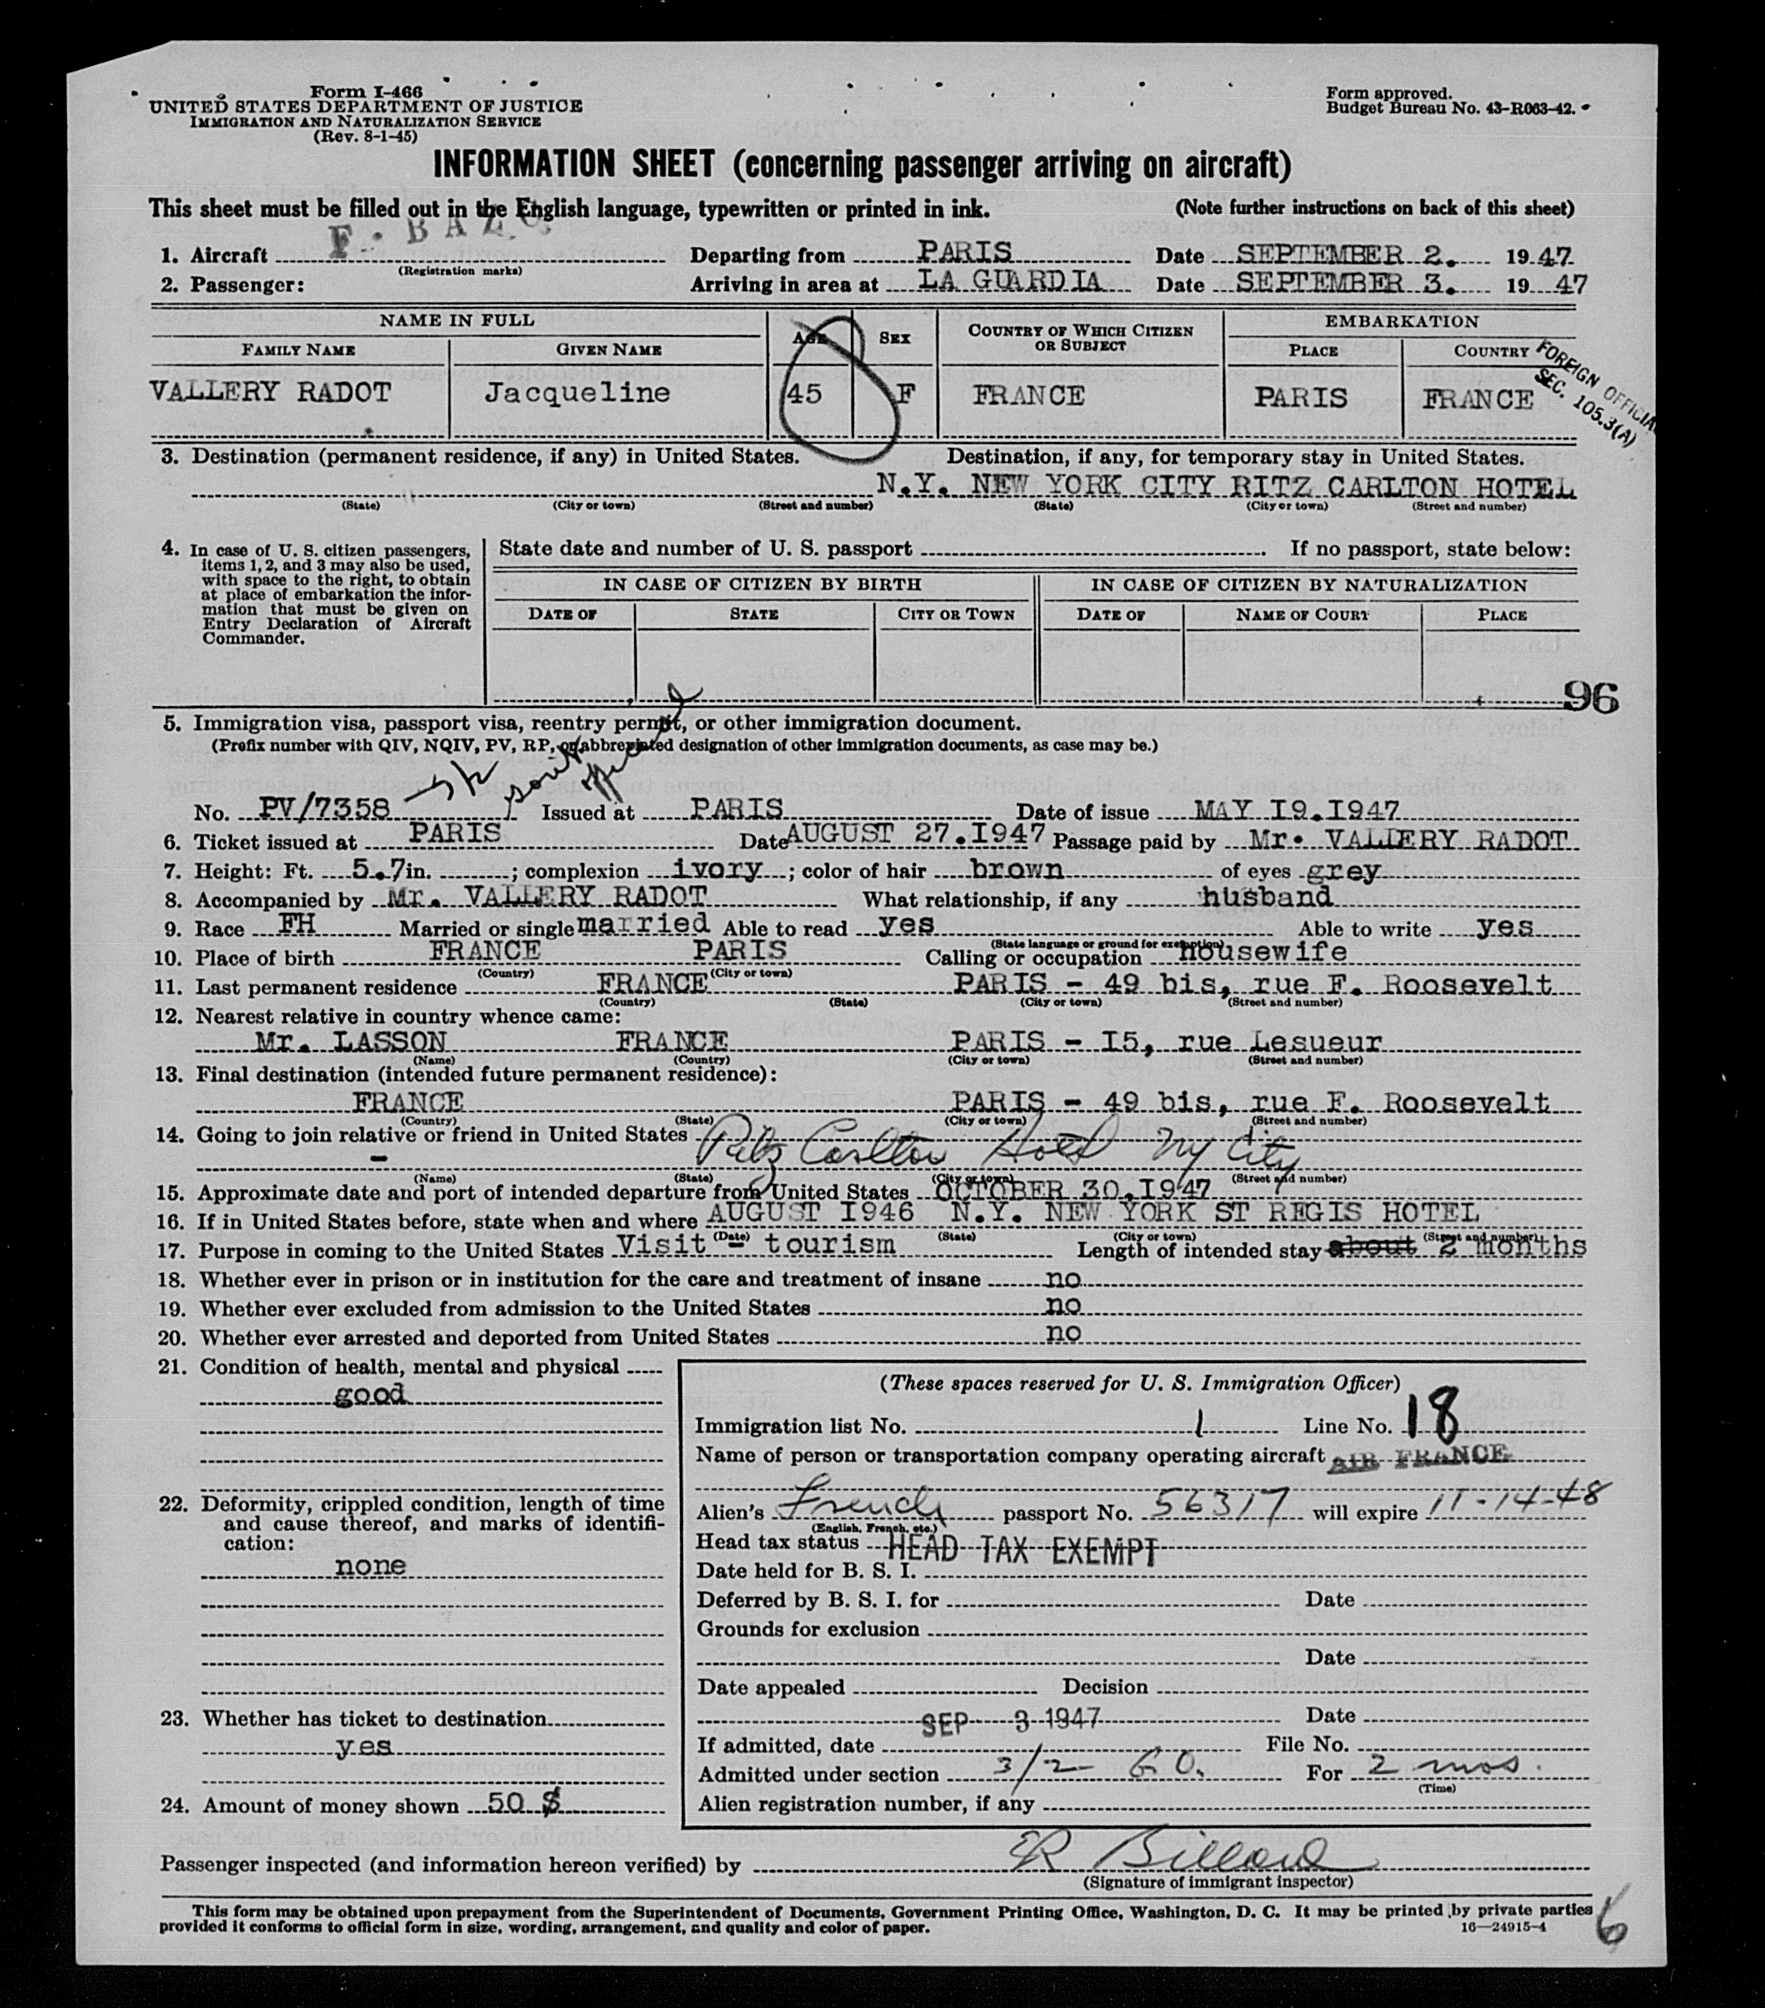 Form I-466
UNITED STATES DEPARTMENT OF JUSTICE
IMMIGRATION AND NATURALIZATION SERVICE
(Rev. 8-1-45)
Form approved.
Budget Bureau No. 43-R063-42.
INFORMATION SHEET (concerning passenger arriving on aircraft)
This sheet must be filled out in the English language, typewritten or printed in ink. (Note further instructions on back of this sheet)
1. Aircraft F. BAZ (Registration marks) Departing from PARIS Date SEPTEMBER 2. 1947
2. Passenger: Arriving in area at LA GUARDIA Date SEPTEMBER 3. 1947
NAME IN FULL AGE SEX COUNTRY OF WHICH CITIZEN OR SUBJECT EMBARKATION
FAMILY NAME GIVEN NAME PLACE COUNTRY
VALLERY RADOT Jacqueline 45 F FRANCE PARIS FRANCE
FOREIGN OFFICIAL
SEC. 105.3(A)
3. Destination (permanent residence, if any) in United States. Destination, if any, for temporary stay in United States.
N.Y. NEW YORK CITY RITZ CARLTON HOTEL
(State) (City or town) (Street and number) (State) (City or town) (Street and number)
4. In case of U. S. citizen passengers, items 1, 2, and 3 may also be used, with space to the right, to obtain at place of embarkation the information that must be given on Entry Declaration of Aircraft Commander.
State date and number of U. S. passport If no passport, state below:
IN CASE OF CITIZEN BY BIRTH IN CASE OF CITIZEN BY NATURALIZATION
DATE OF STATE CITY OR TOWN DATE OF NAME OF COURT PLACE
96
5. Immigration visa, passport visa, reentry permit, or other immigration document.
(Prefix number with QIV, NQIV, PV, RP, or abbreviated designation of other immigration documents, as case may be.)
official
No. PV/7358 Issued at PARIS Date of issue MAY I9.I947
6. Ticket issued at PARIS Date AUGUST 27.I947 Passage paid by Mr. VALLERY RADOT
7. Height: Ft. 5.7 in. ; complexion ivory ; color of hair brown of eyes grey
8. Accompanied by Mr. VALLERY RADOT What relationship, if any husband
9. Race FH Married or single married Able to read yes Able to write yes
(State language or ground for exemption)
10. Place of birth FRANCE PARIS Calling or occupation housewife
(Country) (City or town)
11. Last permanent residence FRANCE PARIS - 49 bis, rue F. Roosevelt
(Country) (State) (City or town) (Street and number)
12. Nearest relative in country whence came:
Mr. LASSON FRANCE PARIS - I5, rue Lesueur
(Name) (Country) (City or town) (Street and number)
13. Final destination (intended future permanent residence):
FRANCE PARIS - 49 bis, rue F. Roosevelt
(Country) (State) (City or town) (Street and number)
14. Going to join relative or friend in United States Ritz Carlton Hotel NY City
-
(Name) (State) (City or town) (Street and number)
15. Approximate date and port of intended departure from United States OCTOBER 30.I947
16. If in United States before, state when and where AUGUST I946 N.Y. NEW YORK ST REGIS HOTEL
(Date) (State) (City or town) (Street and number)
17. Purpose in coming to the United States Visit - tourism Length of intended stay about 2 months
18. Whether ever in prison or in institution for the care and treatment of insane no
19. Whether ever excluded from admission to the United States no
20. Whether ever arrested and deported from United States no
21. Condition of health, mental and physical
good
22. Deformity, crippled condition, length of time
and cause thereof, and marks of identifi-
cation:
none
23. Whether has ticket to destination
yes
24. Amount of money shown 50 $
(These spaces reserved for U. S. Immigration Officer)
Immigration list No. 1 Line No. 18
Name of person or transportation company operating aircraft AIR FRANCE
Alien's French passport No. 56317 will expire 11-14-48
(English, French, etc.)
Head tax status HEAD TAX EXEMPT
Date held for B. S. I.
Deferred by B. S. I. for Date
Grounds for exclusion
Date
Date appealed Decision
SEP 3 1947 Date
If admitted, date File No.
Admitted under section 3/2 G.O. For 2 mos.
(Time)
Alien registration number, if any
Passenger inspected (and information hereon verified) by ER Billard
(Signature of immigrant inspector)
This form may be obtained upon prepayment from the Superintendent of Documents, Government Printing Office, Washington, D. C. It may be printed by private parties
provided it conforms to official form in size, wording, arrangement, and quality and color of paper. 16—24915-4
6